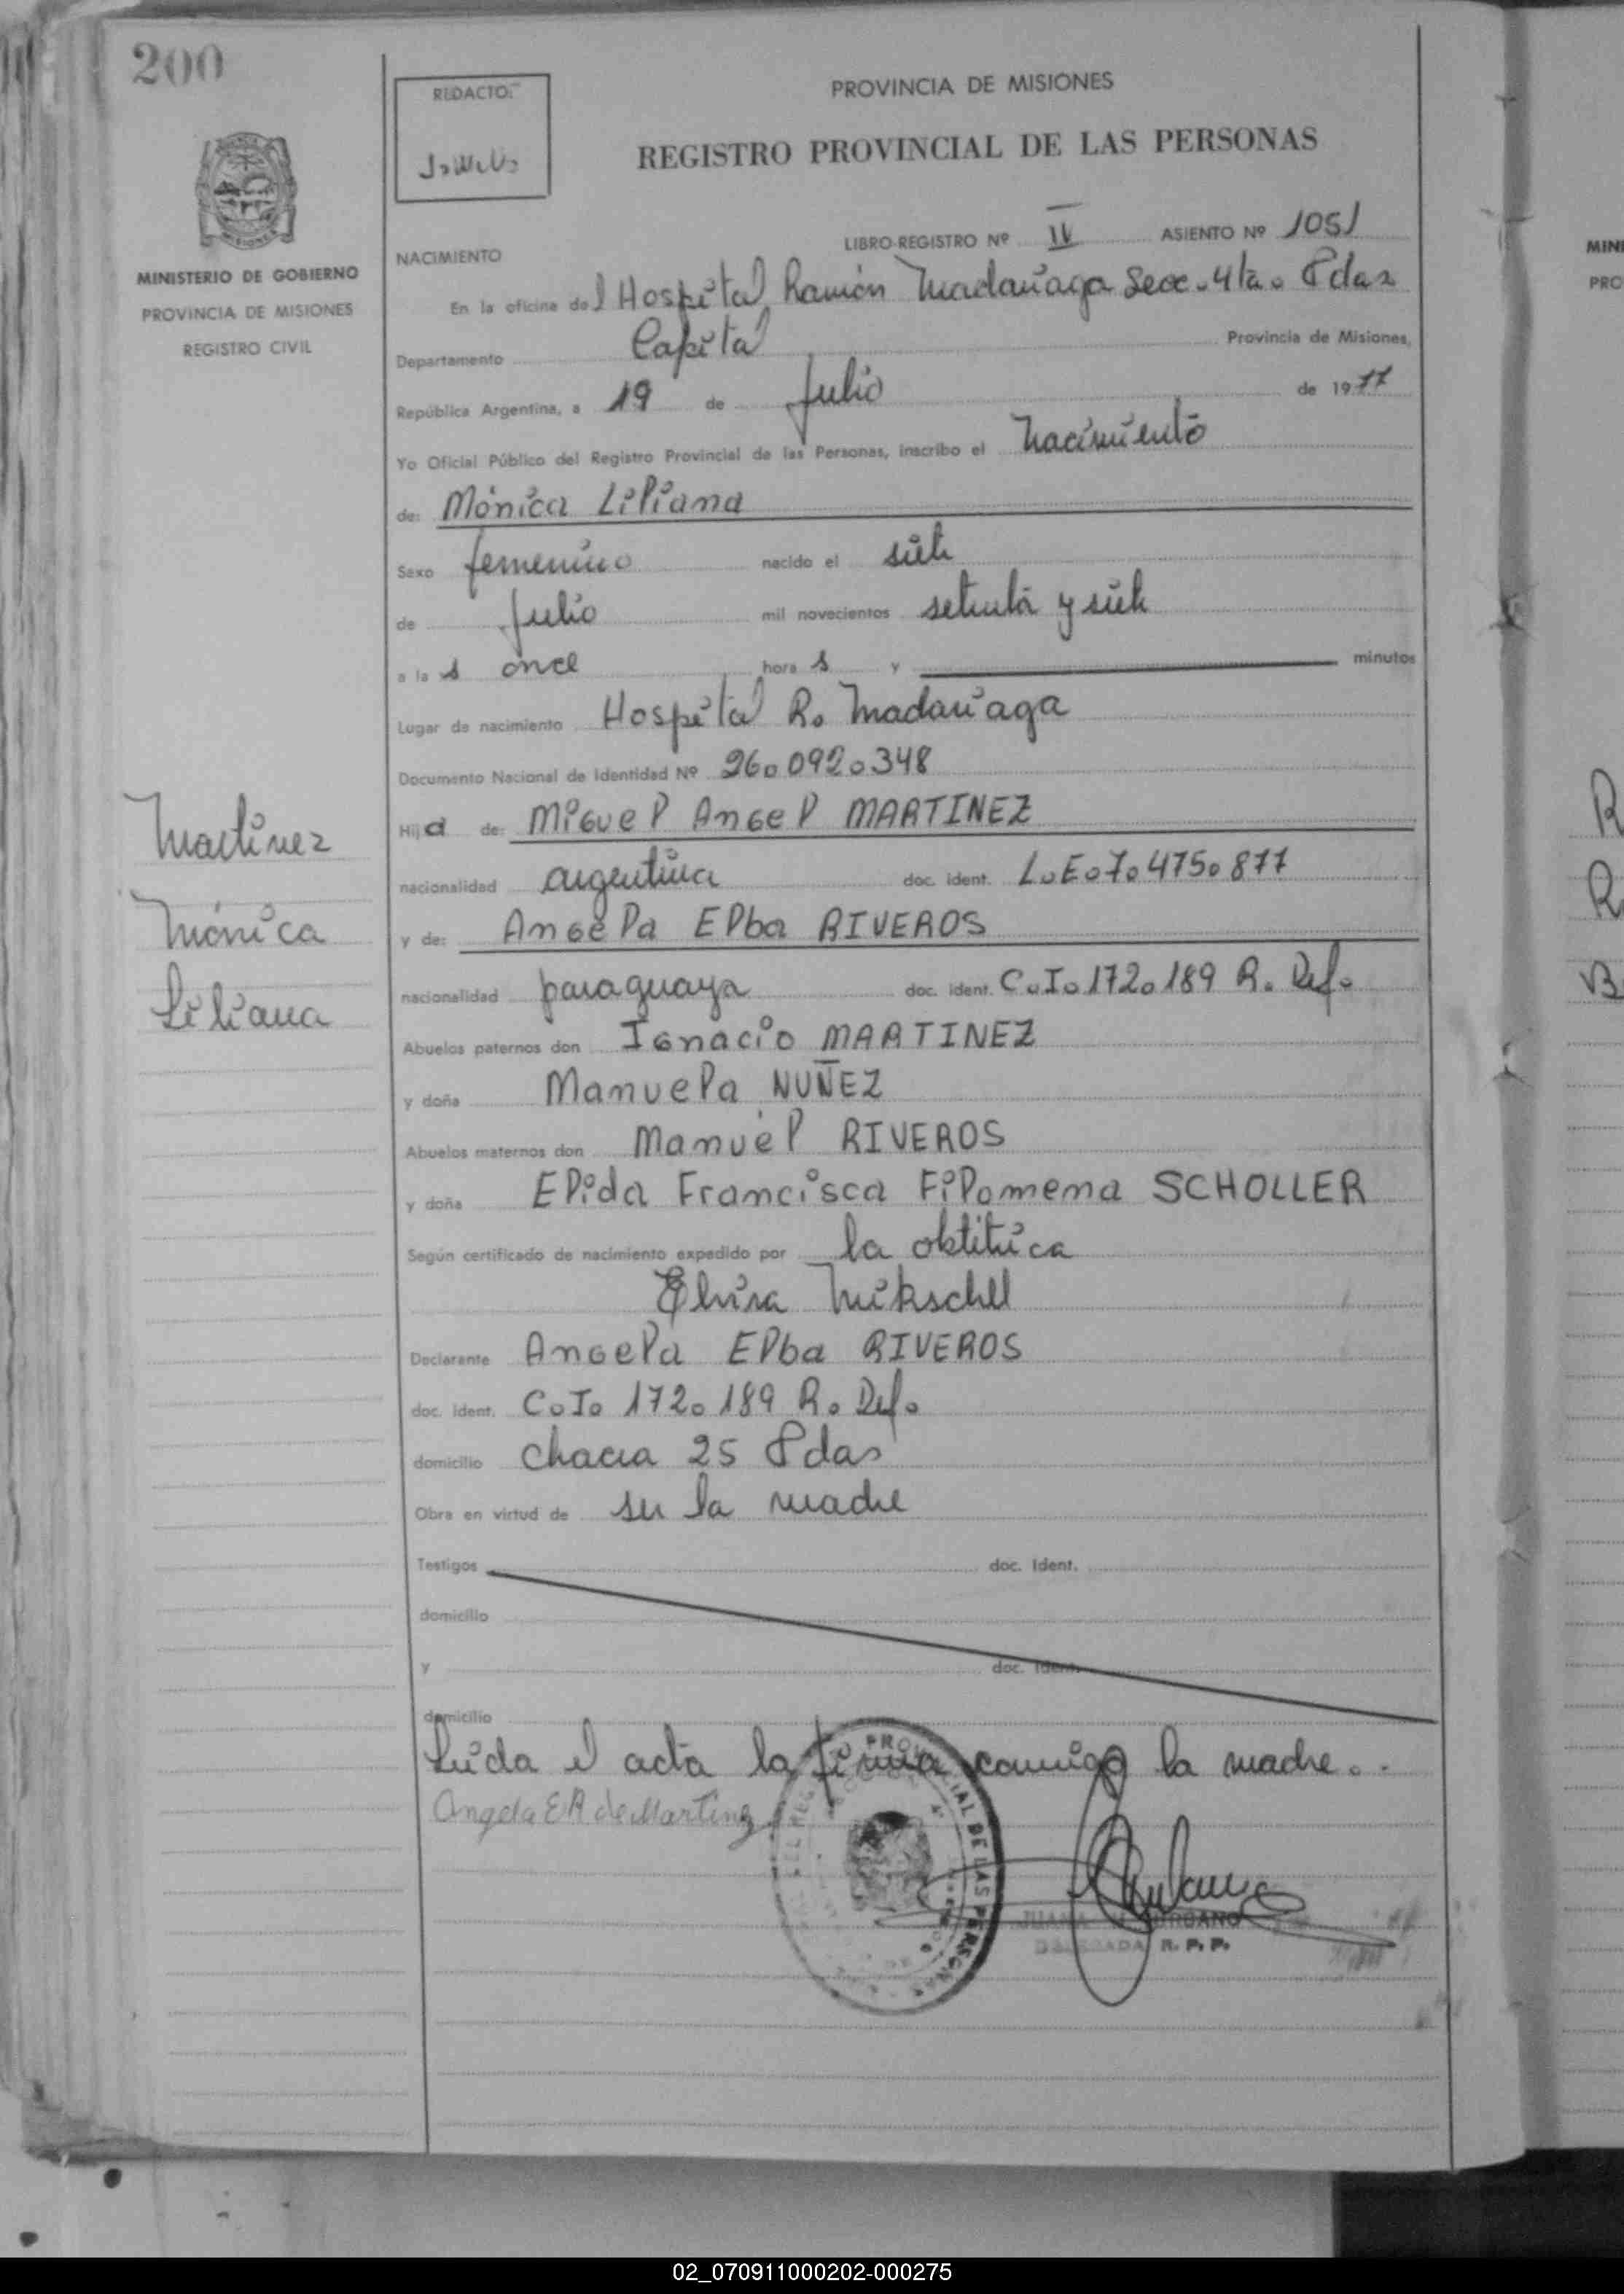 200
REDACTO:
PROVINCIA DE MISIONES
REGISTRO PROVINCIAL DE LAS PERSONAS
MISIONES
MINISTERIO DE GOBIERNO
PROVINCIA DE MISIONES
REGISTRO CIVIL
LIBRO-REGISTRO Nº IV ASIENTO Nº 1051
NACIMIENTO
En la oficina del Hospital Ramón Madariaga Secc. 4ta. Pdas
Departamento Capital Provincia de Misiones,
República Argentina, a 19 de Julio de 1977
Yo Oficial Público del Registro Provincial de las Personas, inscribo el Nacimiento
de: Mónica Liliana
Sexo femenino nacido el siete
de Julio mil novecientos setenta y siete
a las once horas y minutos
Lugar de nacimiento Hospital R. Madariaga
Documento Nacional de Identidad Nº 26.092.348
Hija de: Miguel Angel MARTINEZ
nacionalidad argentina doc. ident. L.E.7.475.877
y de: Angela Elba RIVEROS
nacionalidad paraguaya doc. ident. C.I. 172.189 R. Def.
Abuelos paternos don Ignacio MARTINEZ
y doña Manuela NUÑEZ
Abuelos maternos don Manuel RIVEROS
y doña Elida Francisca Filomena SCHOLLER
Según certificado de nacimiento expedido por la obstétrica
Elvira Mikschel
Declarante Angela Elba RIVEROS
doc. ident. C.I. 172.189 R. Def.
domicilio chacra 25 Pdas
Obra en virtud de ser la madre
Testigos doc. Ident.
domicilio
y doc. Ident.
domicilio
Leída el acta la firma conmigo la madre..
Angela E R de Martinez
Martinez
Mónica
Liliana
PROVINCIAL DE LAS PERSONAS
JUANA
DELEGADA R. P. P.
MINI
PRO
02_070911000202-000275